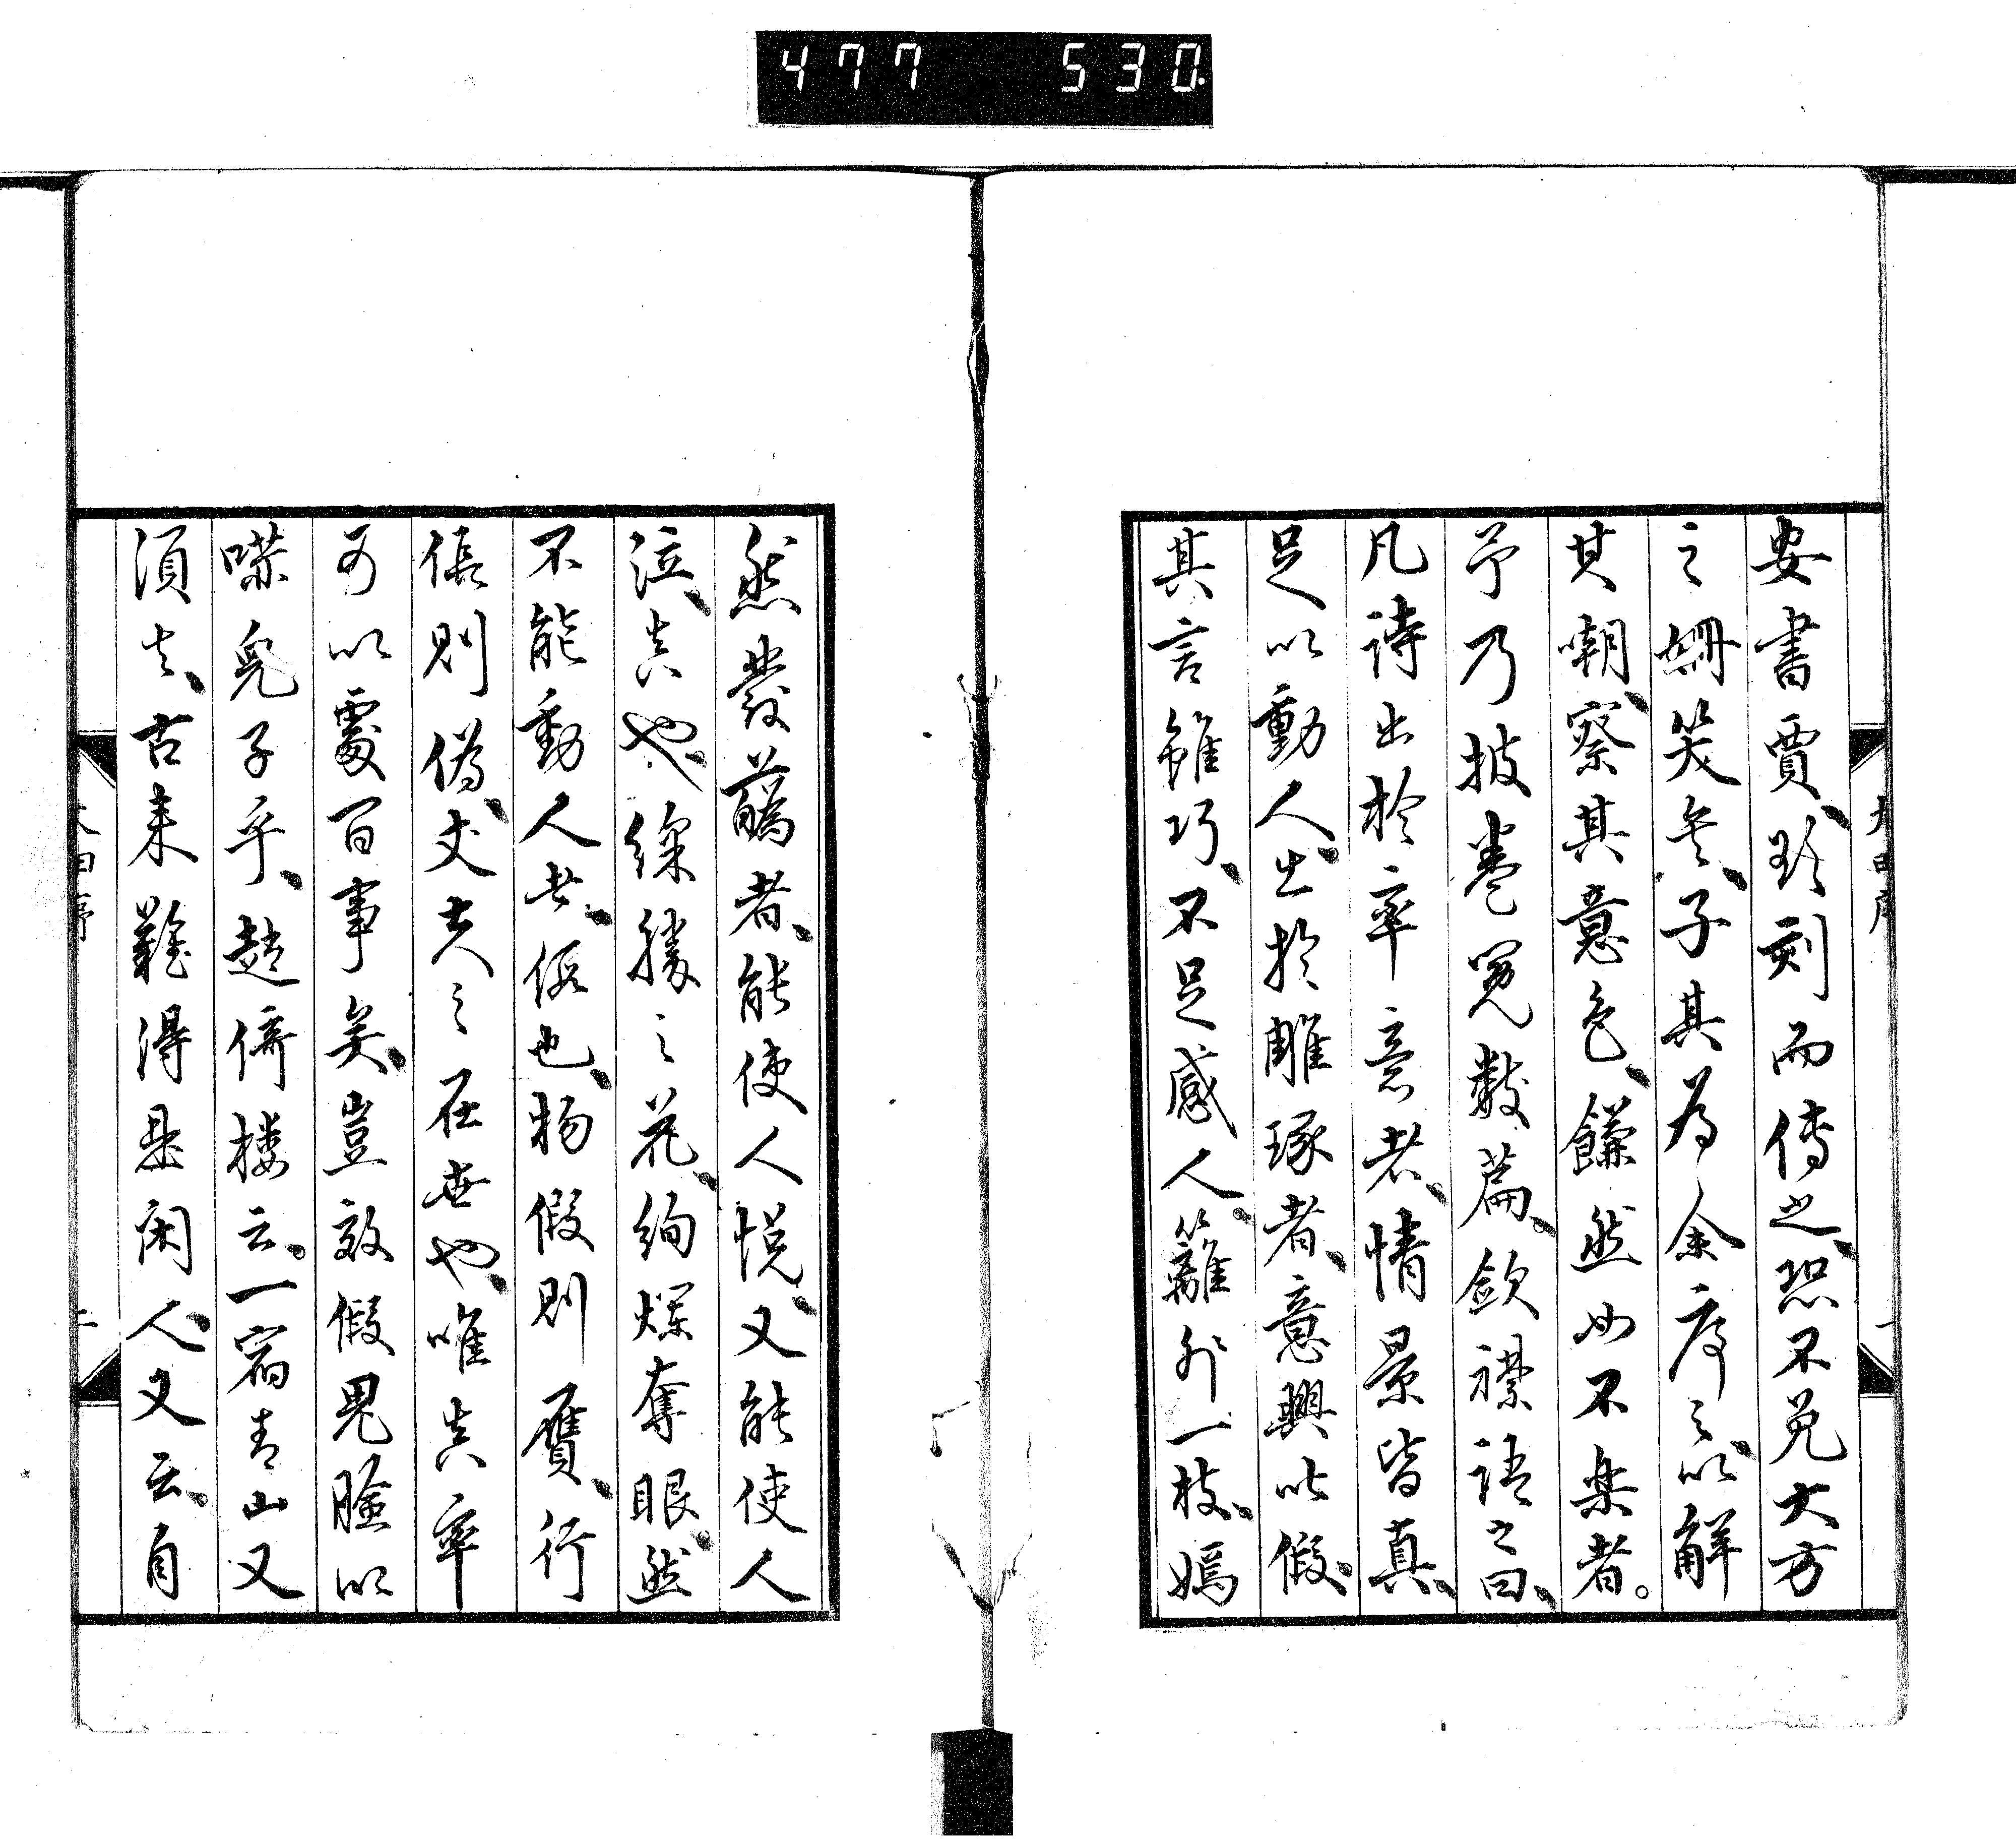 477 530
安書賈鋟刻而傳之恐不免大方
之姍笑矣子其為余序之以解
其嘲察其意色歉然如不樂者。
予乃披卷覓數篇歛襟語之曰
凡詩出於率意者情景皆真
足以動人出於雕琢者意興吥假
其言雖巧不足感人籬外一枝嫣
然發蘤者能使人悅又能使人
泣真也綵勝之花絢爛奪眼然
不能動人者假也物假則贗行
假則偽丈夫之在世也唯真率
可以處百事矣豈效假鬼臉以
喋兒子乎趙倚樓云一宿青山又
須去古来難得是閑人又云自